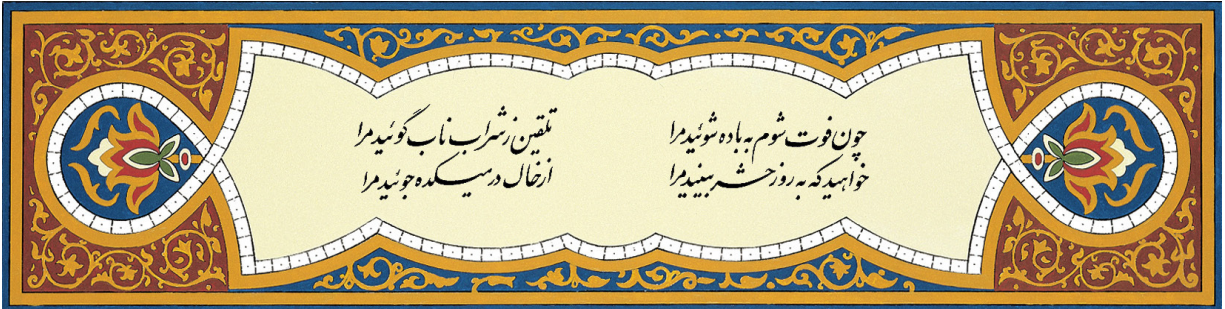 چون فوت شوم به باده شوئید مرا تلقین ز شراب ناب گوئید مرا
خواهید که به روز حشر بینید مرا از خاک در میکده جوئید مرا